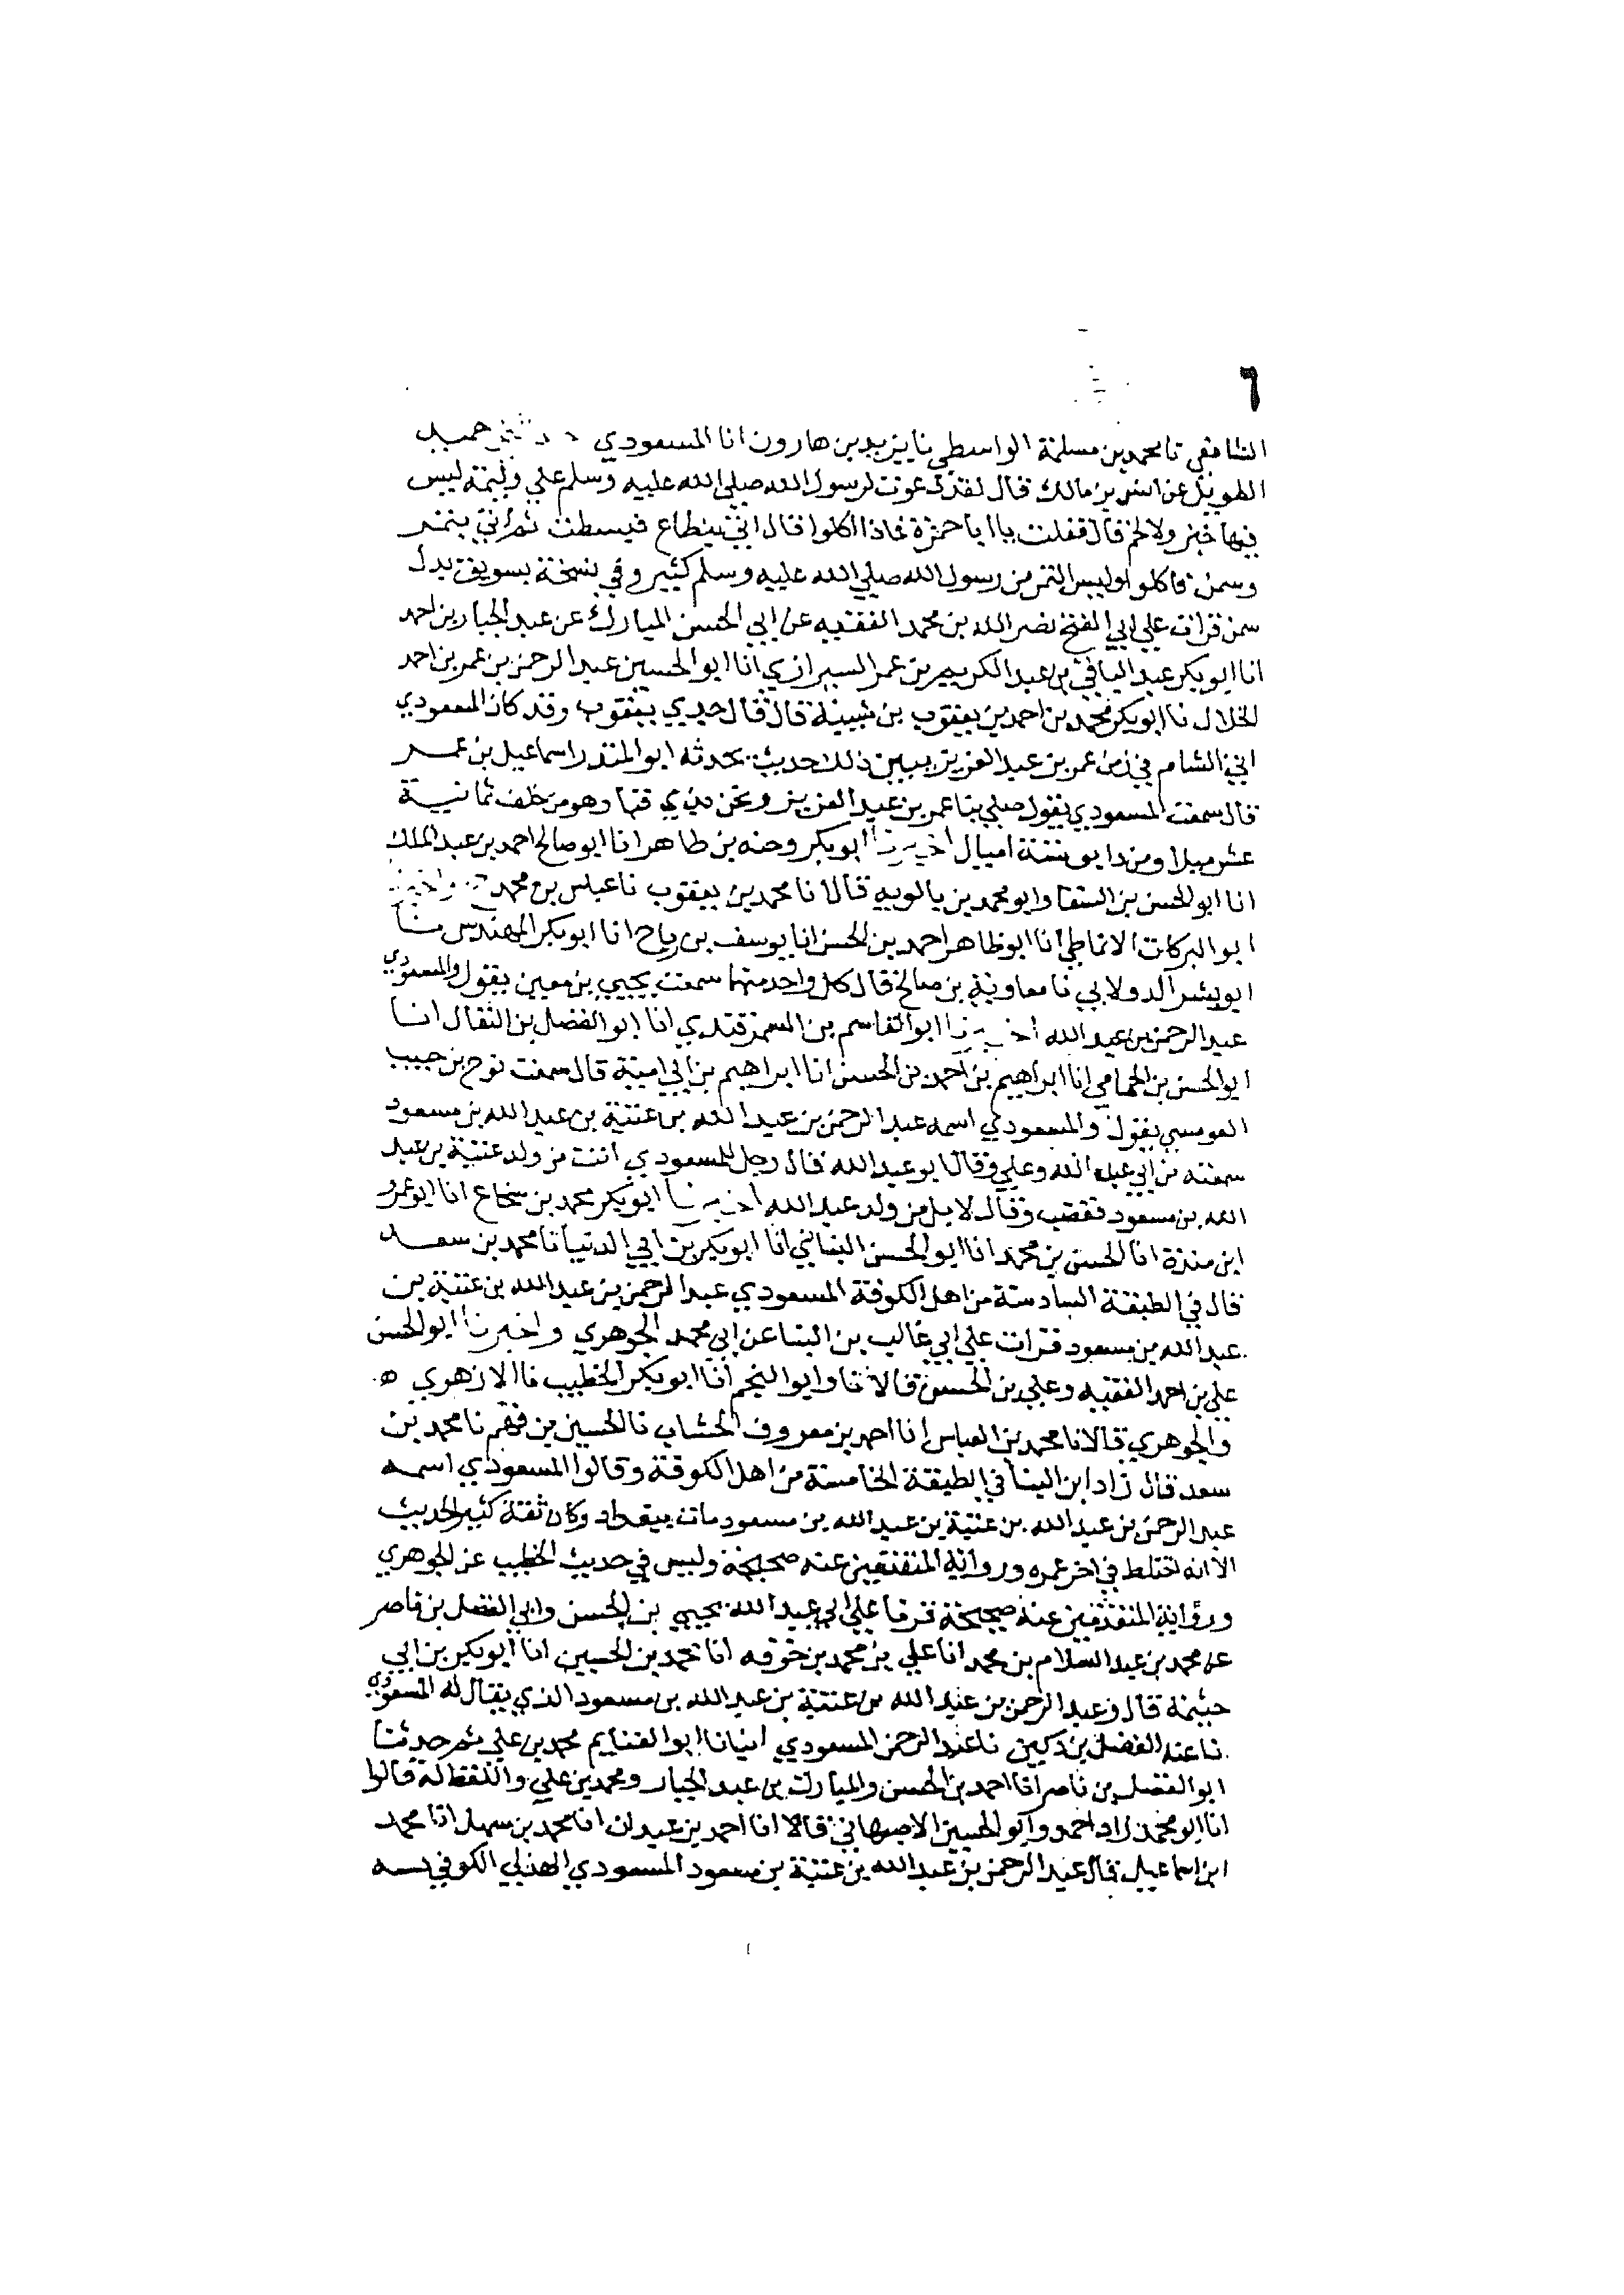 ٦
الشافعي نا محمد بن مسلمة الواسطي نا يزيد بن هارون انا المسعودي حميد
الطويل عن انس بن مالك قال لقد دعوت لرسول الله صلي الله عليه وسلم علي وليمة ليس
فيها خبز ولا لحم قال فقلت يا ابا حمزة فماذا اكلوا قال اتي بنطاع فبسطت ثم اتي بتمر
وسمن فاكلوا وليس التمر من رسول الله صلي الله عليه وسلم كثير وفي نسخة بسويق بدل
سمن قرات علي ابي الفتح نصر الله بن محمد الفقيه عن ابي الحسن المبارك عن عبد الجبار بن احمد
انا ابو بكر عبد الباقي بن عبد الكريم بن عمر السيرازي انا ابو الحسين عبد الرحمن بن عمر بن احمد
الخلال نا ابو بكر محمد بن احمد بن يعقوب بن شيبة قال قال جدي يعقوب وقد كان المسعودي
اتي الشام في زمن عمر بن عبد العزيز يبين ذلك حديث يحدثه ابو المنذر اسماعيل بن عمر
قال سمعت المسعودي يقول صلي بنا عمر بن عبد العزيز ونحن وهو من خلف ثمانية
عشر ميلا ومن دابق ستة اميال اخبرنا ابو بكر وجيه بن طاهر انا ابو صالح احمد بن عبد الملك
انا ابو الحسن بن السقا وابو محمد بن بالويه قالا نا محمد بن يعقوب نا عباس بن محمد واخبرنا
ابو البركات الانماطي انا ابو طاهر احمد بن الحسن انا يوسف بن رباح انا ابو بكر المهندس نا
ابو بشر الدولابي نا معاوية بن صالح قال كل واحد منهما سمعت يحيي بن معين يقول والمسعودي
عبد الرحمن بن عبد الله اخبرنا ابو القاسم بن السمرقندي انا ابو الفضل بن البقال انا
ابو الحسن بن الحمامي انا ابراهيم بن احمد بن الحسن انا ابراهيم بن ابي امية قال سمعت نوح بن حبيب
القومسي يقول والمسعودي اسمه عبد الرحمن بن عبد الله بن عتبة بن عبد الله بن مسعود
سمعته من ابي عبد الله وعلي وقال ابو عبد الله قال رجل للمسعودي انت من ولد عتبة بن عبد
الله بن مسعود فغضب وقال لا بل من ولد عبد الله اخبرنا ابو بكر محمد بن شجاع انا ابو عمرو
ابن مندة انا الحسن بن محمد انا ابو الحسن اللبناني انا ابو بكر بن ابي الدنيا نا محمد بن سعد
قال في الطبقة السادسة من اهل الكوفة المسعودي عبد الرحمن بن عبد الله بن عتبة بن
عبد الله بن مسعود قرات علي ابي غالب بن البنا عن ابي محمد الجوهري واخبرنا ابو الحسن
علي بن احمد الفقيه وعلي بن الحسن قالا نا وابو النجم انا ابو بكر الخطيب نا الازهري
والجوهري قالا نا محمد بن العباس انا احمد بن معروف الخشاب نا الحسين بن فهم نا محمد بن
سعد قال زاد ابن البنا في الطبقة الخامسة من اهل الكوفة وقالوا المسعودي اسمه
عبد الرحمن بن عبد الله بن عتبة بن عبد الله بن مسعود مات ببغداد وكان ثقة كثير الحديث
الا انه اختلط في اخر عمره ورواية المتقدمين عنه صحيحة وليس في حديث الخطيب عن الجوهري
ورواية المتقدمين عنه صحيحة قرنا علي ابي عبد الله يحيي بن الحسن وابي الفضل بن ناصر
عن محمد بن عبد السلام بن محمد انا علي بن محمد بن خزفه انا محمد بن الحسين انا ابو بكر بن ابي
خيثمة قال وعبد الرحمن بن عبد الله بن عتبة بن عبد الله بن مسعود الذي يقال له المسعودي
نا عنه الفضل بن دكين نا عبد الرحمن المسعودي انبانا ابو الغنايم محمد بن علي ثم حدثنا
ابو الفضل بن ناصر انا احمد بن الحسن والمبارك بن عبد الجبار ومحمد بن علي واللفظ له قالوا
انا ابو محمد زاد احمد وابو الحسين الاصبهاني قالا انا احمد بن عبدان انا محمد بن سهل انا محمد
ابن اسماعيل قال عبد الرحمن بن عبد الله بن عتبة بن مسعود المسعودي الهذلي الكوفي